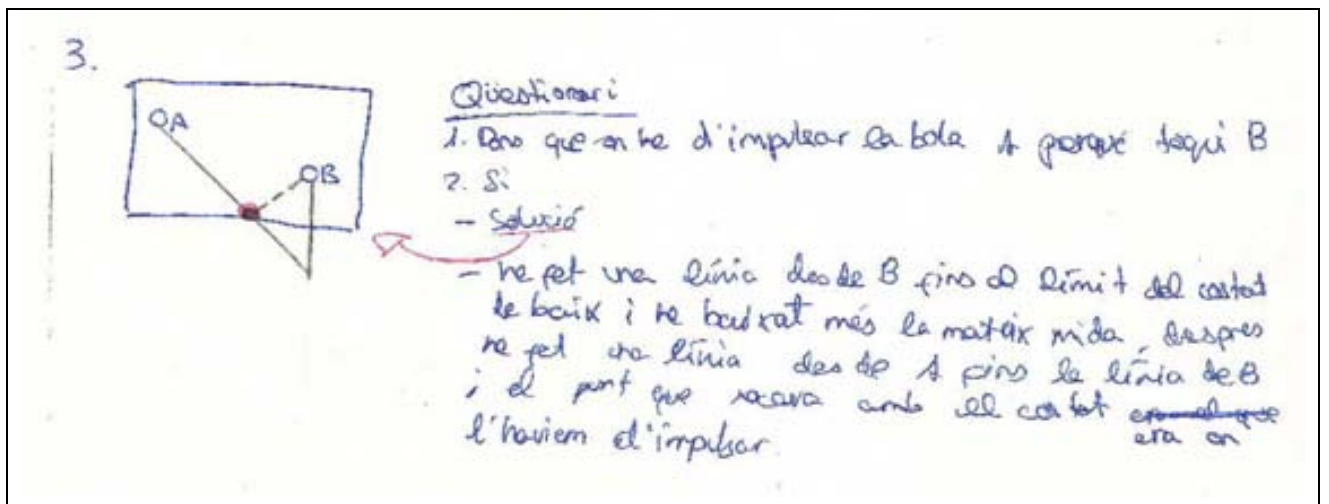 3.
A
B
Qüestionari
1. Dono que on he d'impulsar la bola A perquè toqui B
2. Si
- Solució
- he fet una línia desde B fins al límit del costat
de baix i he baixat més la mateix mida, despres
he fet una línia desde A fins la línia de B
i el punt que xocava amb el costat era el que
era on
l'haviem d'impulsar.